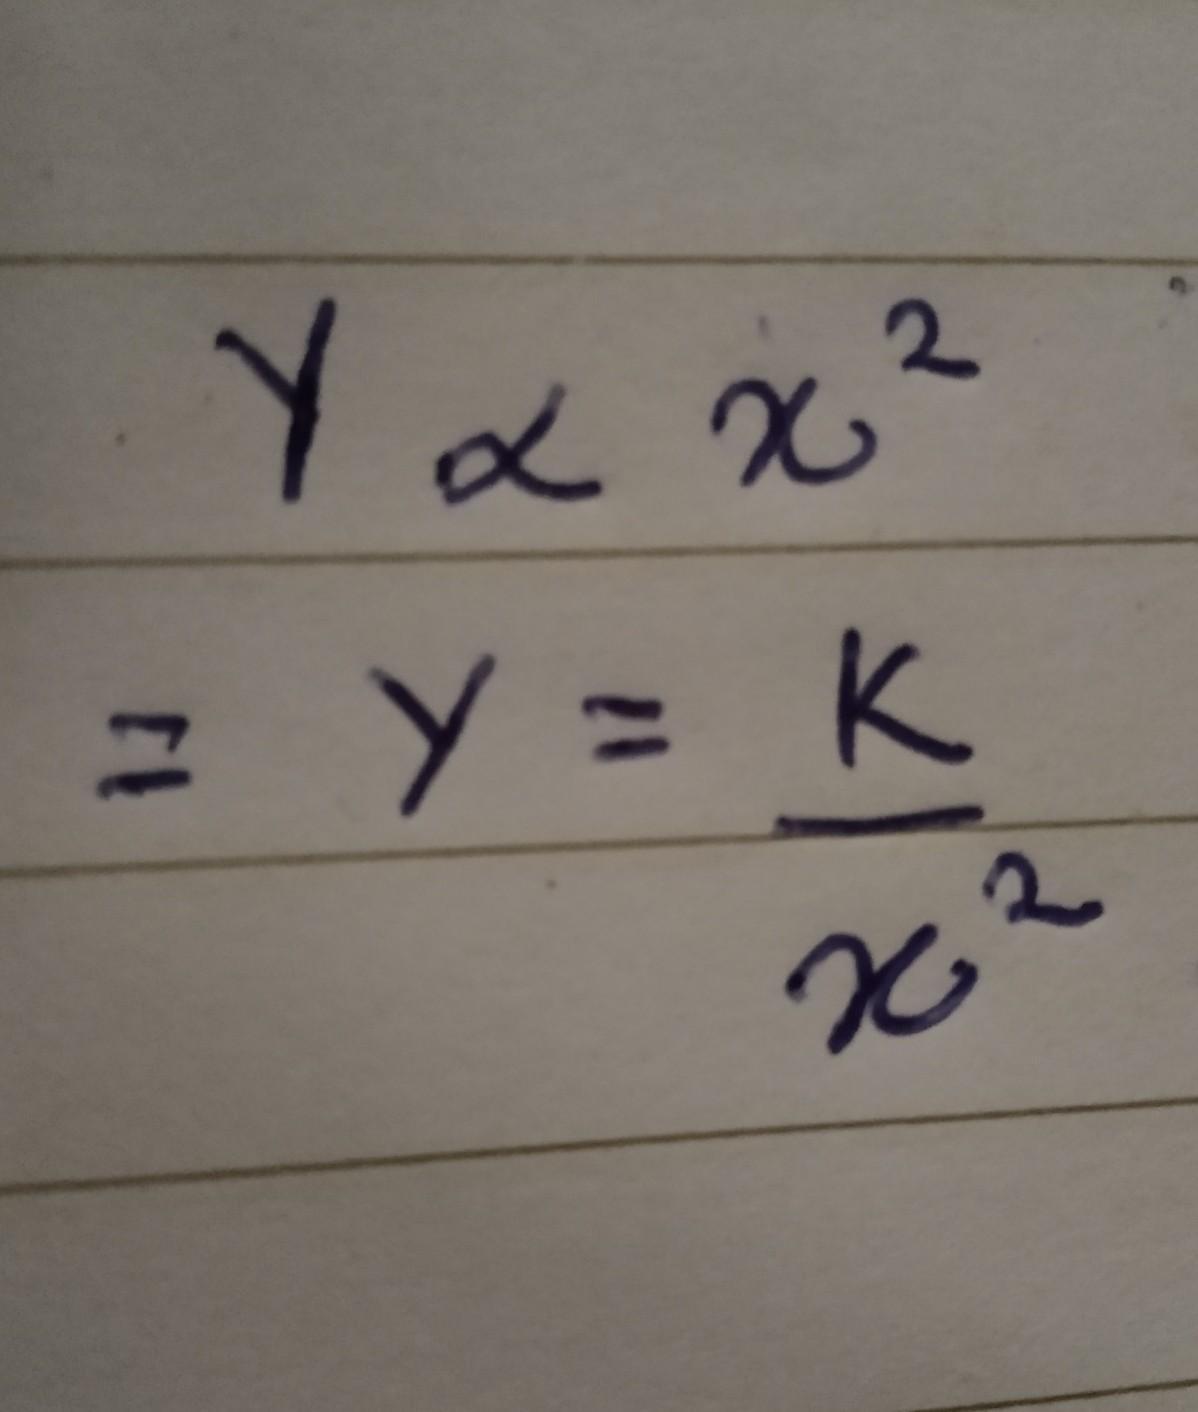 Y ∝ x²
= Y = K / x²